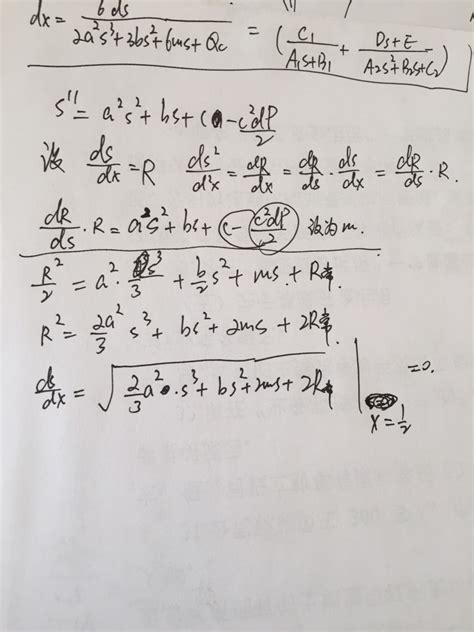 dx = 6ds / 2a²s³+3bs²+6ms+Qc = ( C₁ / A₁s+B₁ + Ds+E / A₂s²+B₂s+C₂ )
s'' = a²s² + bs + c - c²dP/2
设 ds/dx = R ds²/d²x = dR/dx = dR/ds · ds/dx = dR/ds · R.
dR/ds · R = a²s² + bs + c - c²dP/2 设为m.
R²/2 = a² · s³/3 + b/2 s² + ms + R常.
R² = 2a²/3 s³ + bs² + 2ms + 2R常.
ds/dx = √(2/3 a² · s³ + bs² + 2ms + 2R常) | x=1/2 =0.